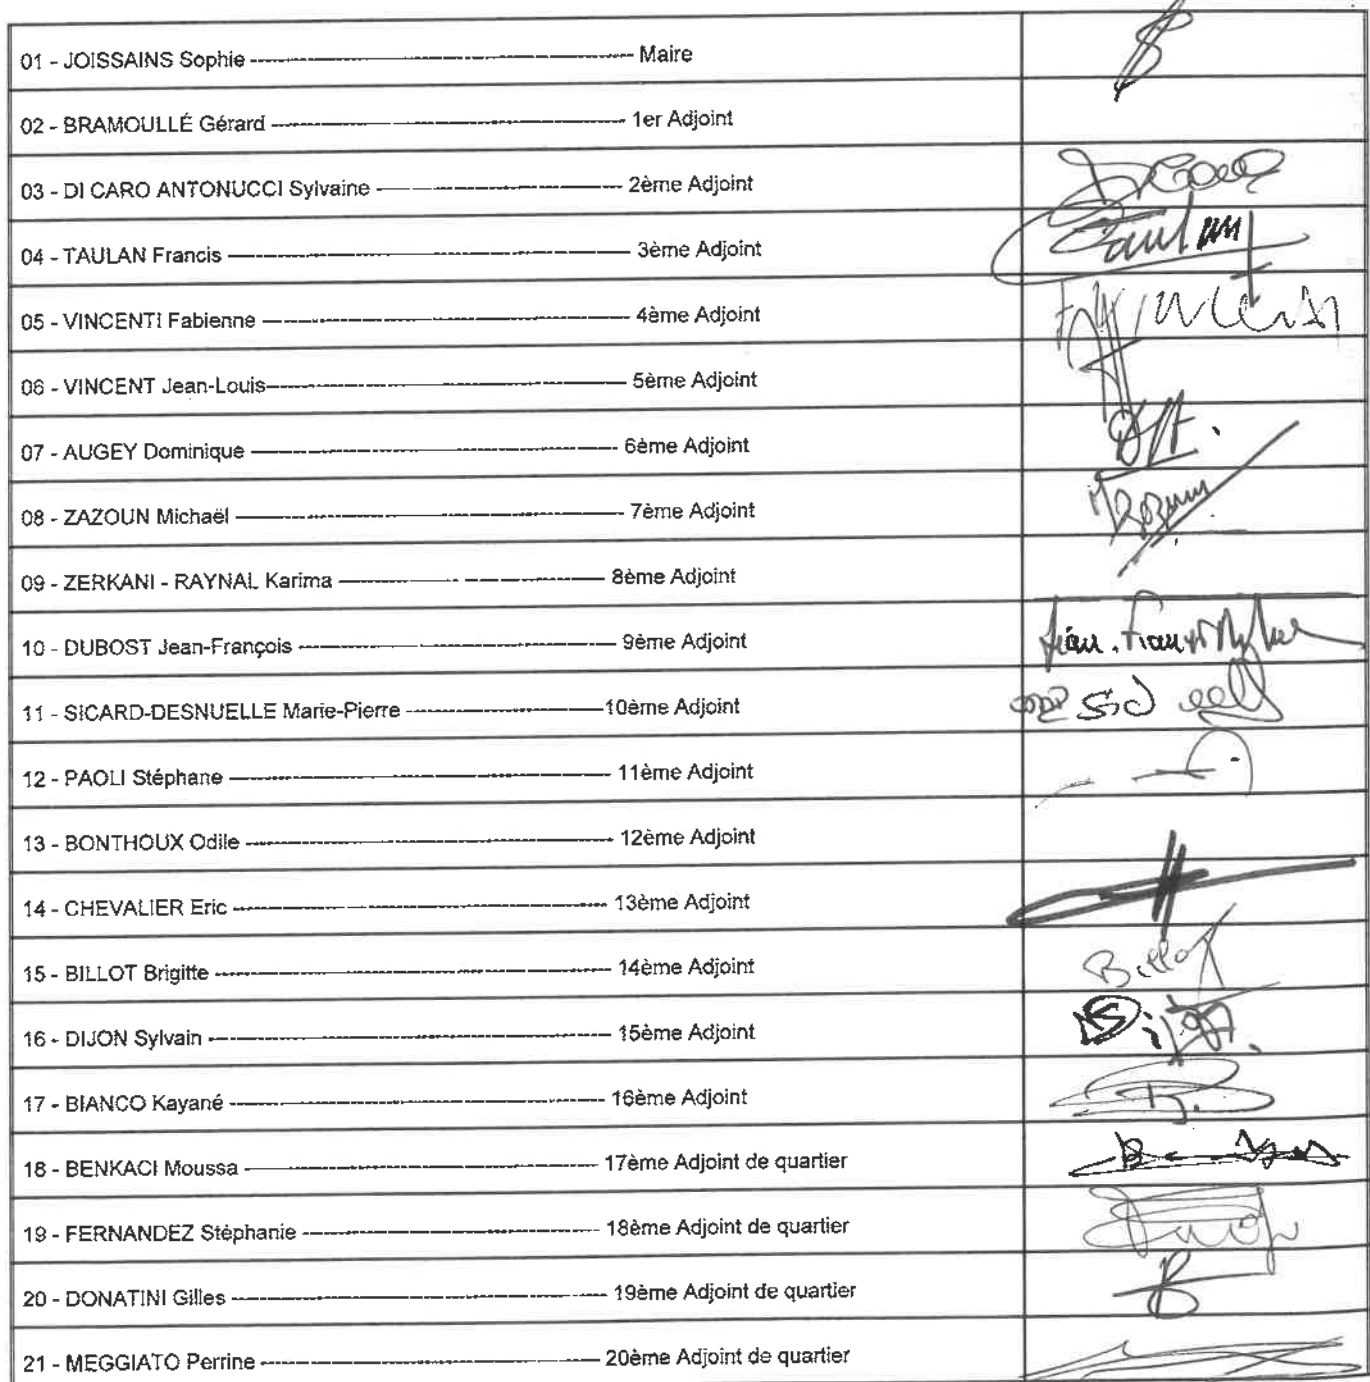 01 - JOISSAINS Sophie ---------- Maire
02 - BRAMOULLÉ Gérard ---------- 1er Adjoint
03 - DI CARO ANTONUCCI Sylvaine ---------- 2ème Adjoint
04 - TAULAN Francis ---------- 3ème Adjoint
05 - VINCENTI Fabienne ---------- 4ème Adjoint
06 - VINCENT Jean-Louis ---------- 5ème Adjoint
07 - AUGEY Dominique ---------- 6ème Adjoint
08 - ZAZOUN Michaël ---------- 7ème Adjoint
09 - ZERKANI - RAYNAL Karima ---------- 8ème Adjoint
10 - DUBOST Jean-François ---------- 9ème Adjoint
11 - SICARD-DESNUELLE Marie-Pierre ---------- 10ème Adjoint
12 - PAOLI Stéphane ---------- 11ème Adjoint
13 - BONTHOUX Odile ---------- 12ème Adjoint
14 - CHEVALIER Eric ---------- 13ème Adjoint
15 - BILLOT Brigitte ---------- 14ème Adjoint Billot
16 - DIJON Sylvain ---------- 15ème Adjoint
17 - BIANCO Kayané ---------- 16ème Adjoint
18 - BENKACI Moussa ---------- 17ème Adjoint de quartier
19 - FERNANDEZ Stéphanie ---------- 18ème Adjoint de quartier
20 - DONATINI Gilles ---------- 19ème Adjoint de quartier
21 - MEGGIATO Perrine ---------- 20ème Adjoint de quartier